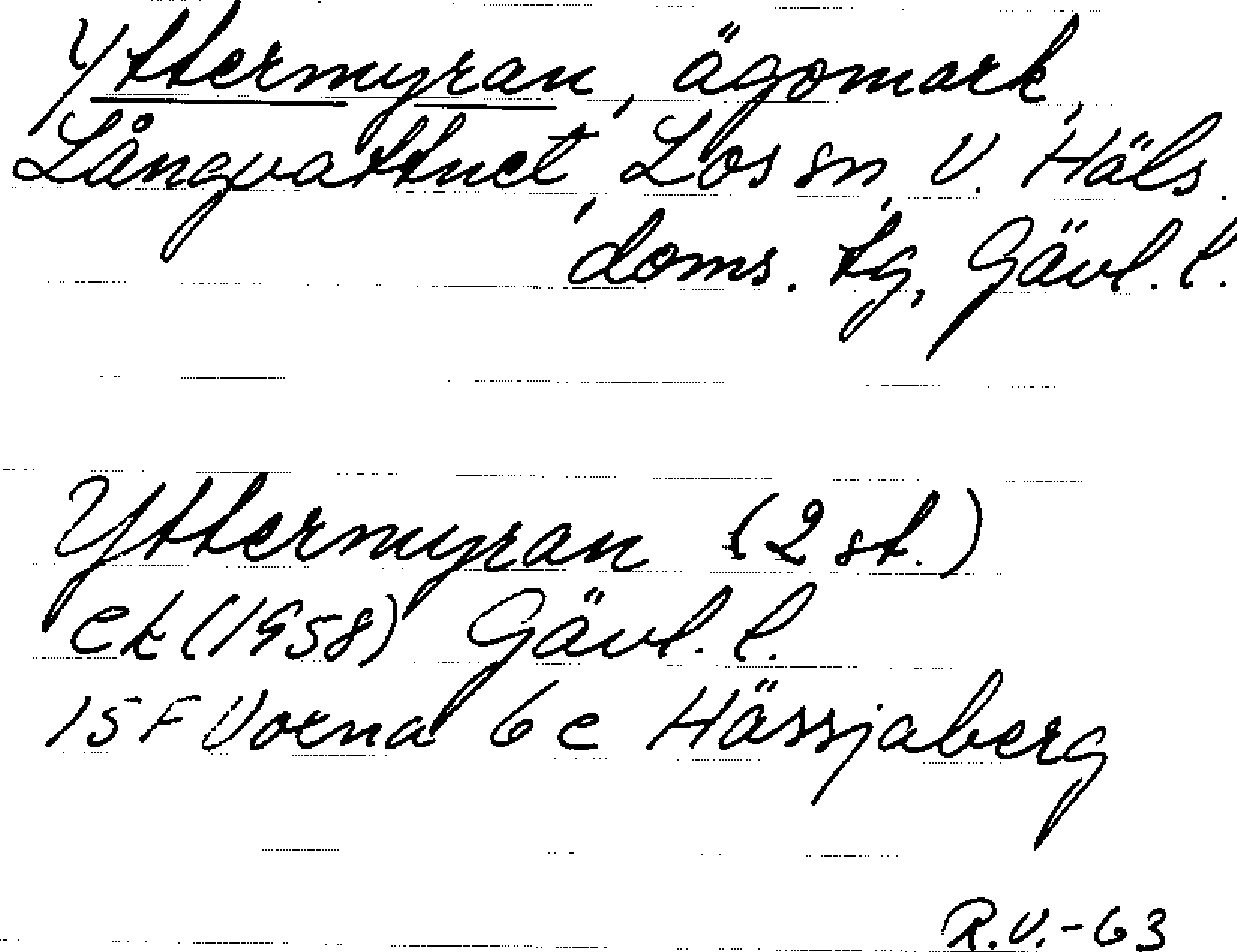 Yttermyran, ägomark,
Långvattnet, Los sn, V. Häls.
doms. tg, Gävl. l.
Yttermyran (2 st.)
ek (1958) Gävl. l.
15F Vorna 6e Hässjaberg
R.V.-63